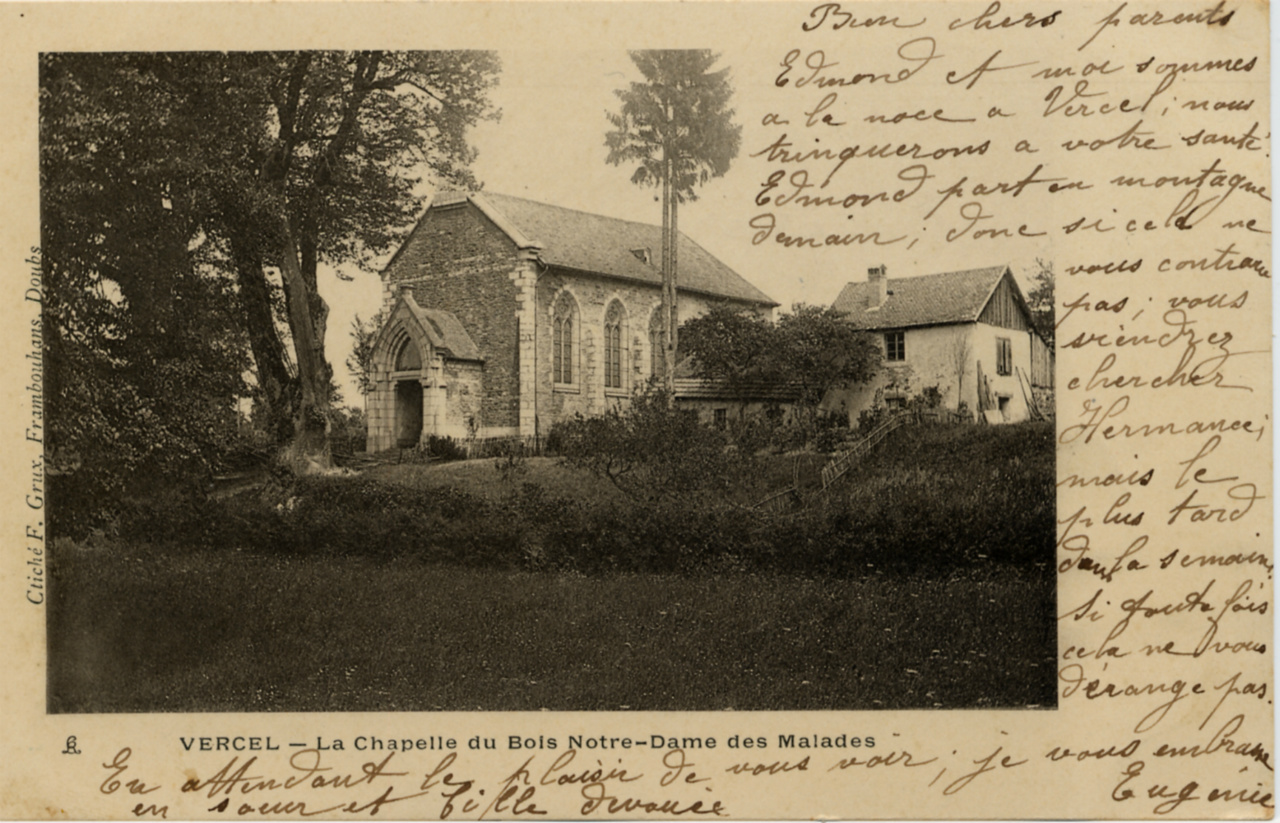 Bien chers parents
Edmond et moi sommes
a la noce a Vercel ; nous
trinquerons a votre santé.
Edmond part en montagne
demain ; donc si cela ne
vous contrarie
pas ; vous
viendrez
chercher
Hermance ;
mais le
plus tard
dans la semaine
Si toute fois
cela ne vous
dérange pas.
Cliché F. Grux, Frambouhans Doubs
VERCEL — La Chapelle du Bois Notre-Dame des Malades
En attendant le plaisir de vous voir ; je vous embrasse
en sœur et fille dévouée
Eugénie